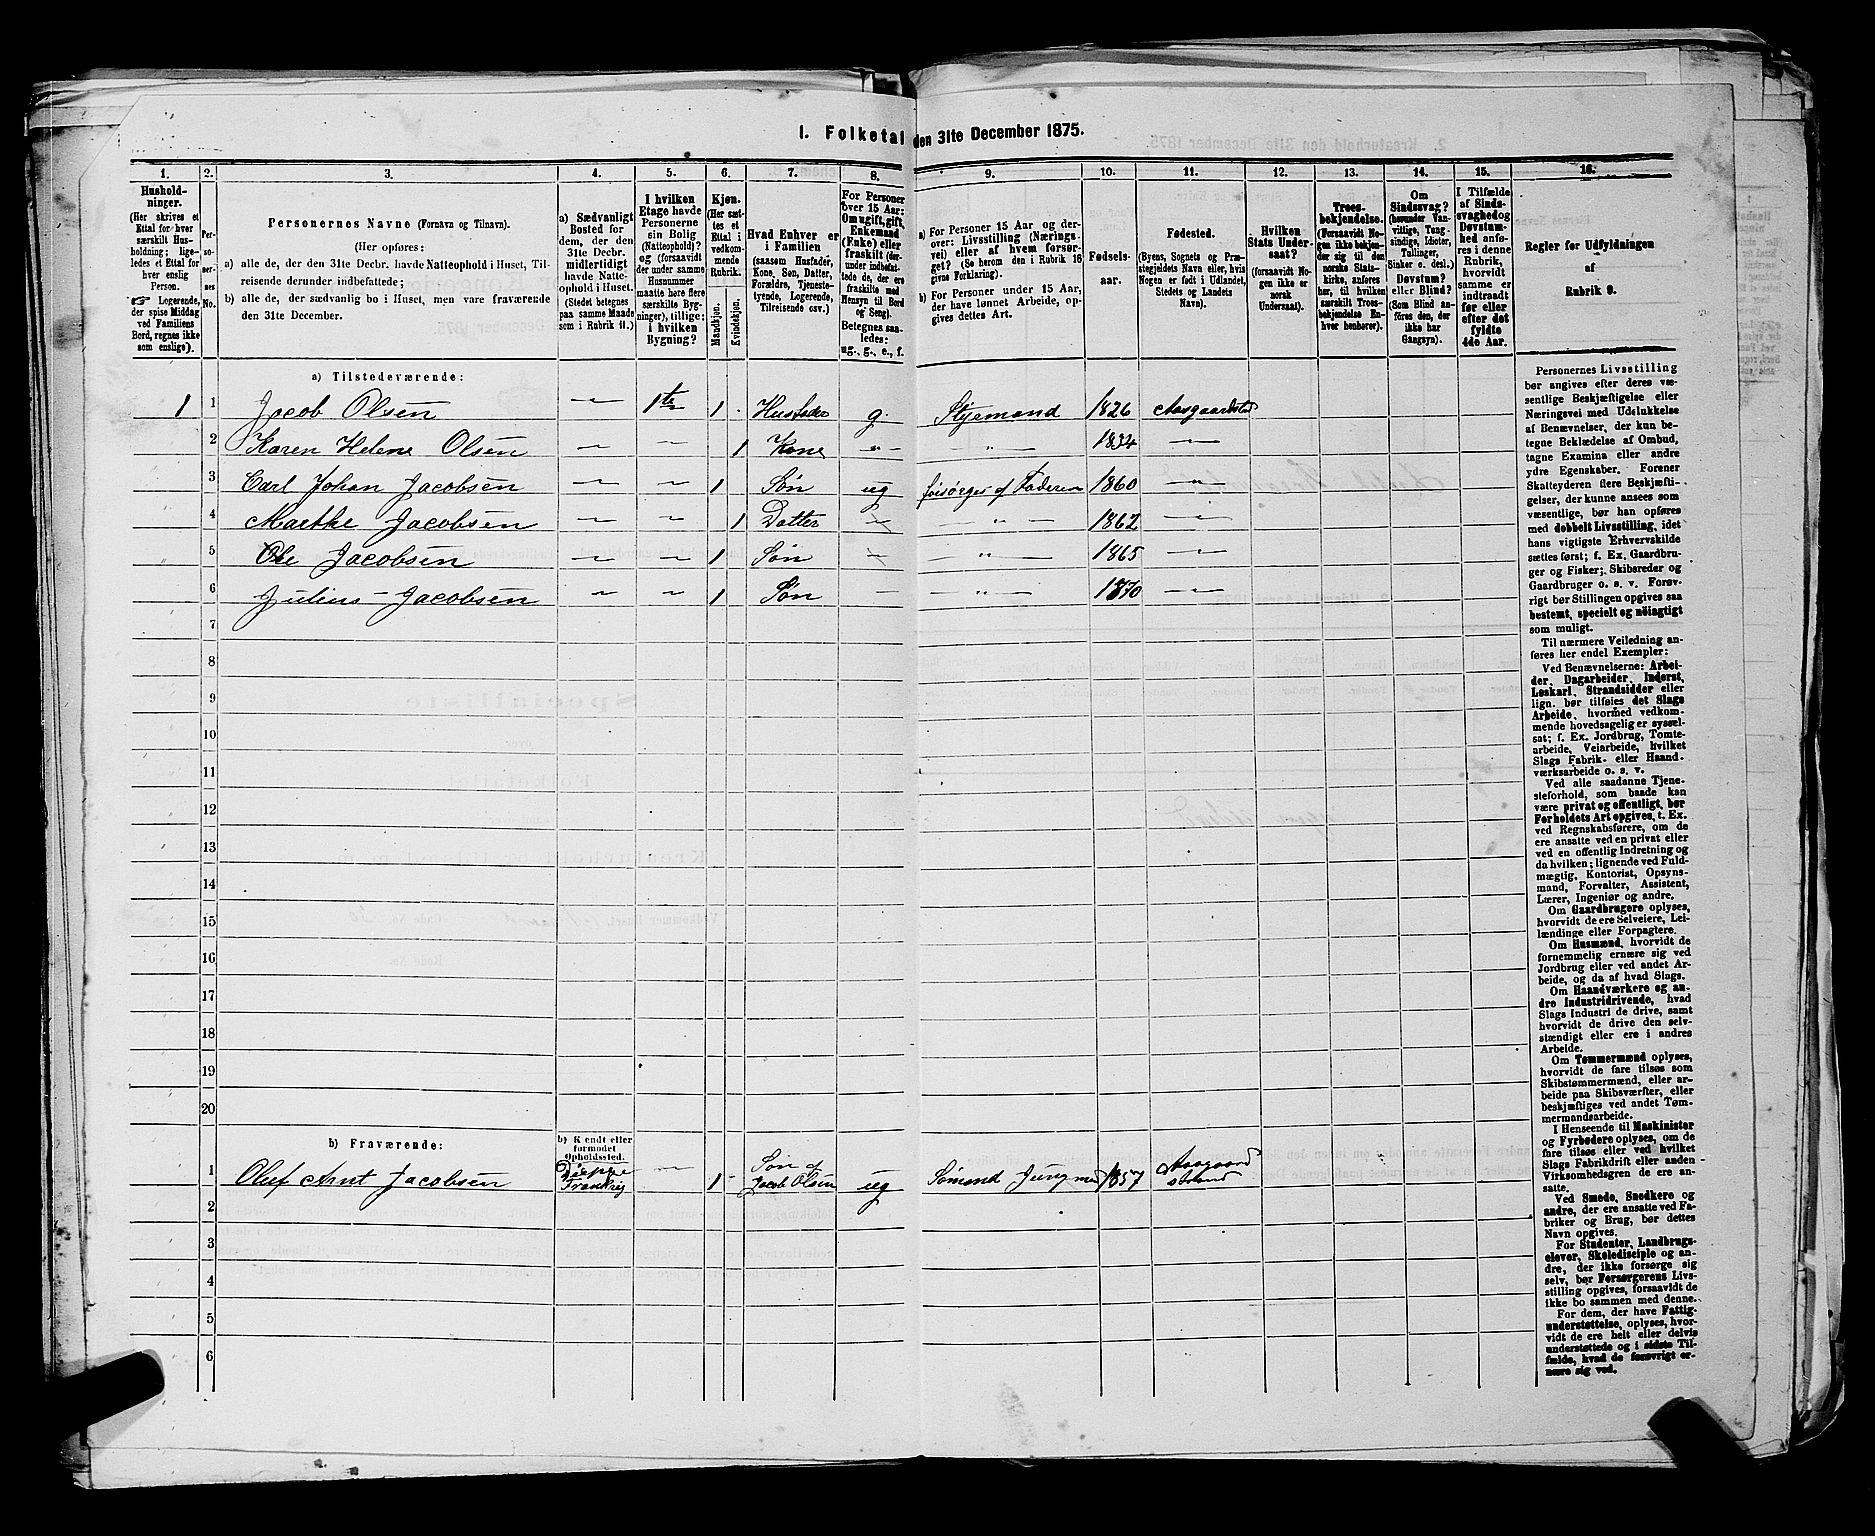 1. Folketal den 31te December 1875.
1.
2.
3.
4.
5.
6.
7.
8.
9.
10.
11.
12.
13.
14.
15.
16.
Hushold-
ninger.
(Her skrives et
Ettal for hver
særskilt Hus-
holdning; lige-
ledes et Ettal for
hver enslig
Person.
☞ Logerende,
der spise Middag
ved Familiens
Bord, regnes ikke
som enslige).
Per-
so-
ner-
nes
No.
Personernes Navne (Fornavn og Tilnavn).
(Her opføres:
a) alle de, der den 31te Decbr. havde Natteophold i Huset, Til-
reisende derunder indbefattede;
b) alle de, der sædvanlig bo i Huset, men vare fraværende
den 31te December.
a) Sædvanligt
Bosted for
dem, der den
31te Decbr.
midlertidigt
havde Natte-
ophold i Huset.
(Stedet betegnes
paa samme Maade
som i Rubrik 11.)
I hvilken
Etage havde
Personerne
sin Bolig
(Natteophold)?
og (forsaavidt
der under samme
Husnummer
maatte høre flere
særskilte Byg-
ninger), tillige:
i hvilken
Bygning?
Kjøn.
(Her sæt-
tes et
Ettal i
vedkom-
mende
Rubrik.
Mandkjøn.
Kvindekjøn.
Hvad Enhver er
i Familien
(saasom Husfader,
Kone, Søn, Datter,
Forældre, Tjeneste-
tyende, Logerende,
Tilreisende osv.)
For Personer
over 15 Aar:
Om ugift, gift,
Enkemand
(Enke) eller
fraskilt (der-
under indbefat-
tede de, der ere
fraskilte med
Hensyn til Bord
og Seng).
Betegnes saa-
ledes:
ug., g., e., f.
a) For Personer 15 Aar og der-
over: Livsstilling (Nærings-
vei) eller af hvem forsør-
get? (Se herom den i Rubrik 16
givne Forklaring).
b) For Personer under 15 Aar,
der have lønnet Arbeide, op-
gives dettes Art.
Fødsels-
aar.
Fødested.
(Byens, Sognets og Præ-
stegjeldets Navn eller, hvis
Nogen er født i Udlandet,
Stedets og Landets
Navn).
Hvilken
Stats Under-
saat?
(forsaavidt No-
gen ikke er
norsk
Undersaat).
Troes-
bekjendelse.
(Forsaavidt No-
gen ikke bekjen-
der sig til den
norske Stats-
kirke, anføres
her, til hvilken
særskilt Troes-
bekjendelse En-
hver henhører).
Om
Sindssvag?
(herunder Van-
vittige, Tung-
sindige, Idioter,
Tullinger,
Sinker o. desl.)
Døvstum?
eller Blind?
(Som Blind an-
føres den, der
ikke har
Gangsyn).
I Tilfælde
af Sinds-
svaghed og
Døvstum-
hed anfø-
res i denne
Rubrik,
hvorvidt
samme er
indtraadt
før eller
efter det
fyldte
4de Aar.
Regler for Udfyldningen
af
Rubrik 9.
a) Tilstedeværende:
1 1 Jacob Olsen — 1te 1 Husfader g. Styrmand 1826 Aasgaardstrand
2 Karen Helene Olsen — — 1 Kone " — " — 1834 — " —
3 Carl Johan Jacobsen — — 1 Søn ug forsørges af Faderen 1860 — " —
4 Marthe Jacobsen — — 1 Datter — " — 1862 — " —
5 Ole Jacobsen — — 1 Søn — " — 1865 — " —
6 Julius Jacobsen — — 1 Søn — — " — 1870 — " —
7
8
9
10
11
12
13
14
15
16
17
18
19
20
b) Fraværende:
b) Kjendt eller
formodet
Opholdssted.
1 Oluf Arnt Jacobsen Dieppe Frankrig — 1 Søn af Jacob Olsen ug Sømand 1857 Aasgaardstrand
2
3
4
5
6
Personernes Livsstilling
bør angives efter deres væ-
sentlige Beskjæftigelse eller
Næringsvei med Udelukkelse
af Benævnelser, der kun be-
tegne Beklædelse af Ombud,
tagne Examina eller andre
ydre Egenskaber. Forener
Skatteyderen flere Beskjæfti-
gelser, der kunne ansees som
væsentlige, bør han opføres
med dobbelt Livsstilling, idet
hans vigtigste Erhvervskilde
sættes først; f. Ex. Gaardbru-
ger og Fisker; Skibsreder og
Gaardbruger o. s. v. Forøv-
rigt bør Stillingen opgives saa
bestemt, specielt og nøiagtigt
som muligt.
Til nærmere Veiledning an-
føres her endel Exempler:
Ved Benævnelserne: Arbei-
der, Dagarbeider, Inderst,
Løskarl, Strandsidder eller
lign. bør tilføies det Slags
Arbeide, hvormed vedkom-
mende hovedsagelig er syssel-
sat; f. Ex. Jordbrug, Tomte-
arbeide, Veiarbeide, hvilket
Slags Fabrik- eller Haand-
værksarbeide o. s. v.
Ved alle saadanne Tjene-
steforhold, som baade kan
være privat og offentligt, bør
Forholdets Art opgives, t. Ex.
ved Regnskabsførere, om de
ere ansatte ved en privat eller
ved en offentlig Indretning og
da hvilken; lignende ved Fuld-
mægtig, Kontorist, Opsyns-
mand, Forvalter, Assistent,
Lærer, Ingeniør og andre.
Om Gaardbrugere oplyses,
hvorvidt de ere Selveiere, Lei-
lændinge eller Forpagtere.
Om Husmænd, hvorvidt de
fornemmelig ernære sig ved
Jordbrug eller ved andet Ar-
beide, og da af hvad Slags.
Om Haandværkere og an-
dre Industridrivende, hvad
Slags Industri de drive, samt
hvorvidt de drive den selv-
stændigt eller ere i andres
Arbeide.
Om Tømmermænd oplyses,
hvorvidt de fare tilsøs som
Skibstømmermænd, eller ar-
beide paa Skibsværfter, eller
beskjæftiges ved andet Tøm-
mermandsarbeide.
I Henseende til Maskinister
og Fyrbødere oplyses, om de
fare tilsøs eller ved hvilket
Slags Fabrikdrift eller anden
Virksomhedsgren de ere an-
satte.
Ved Smede, Snedkere og
andre, der ere ansatte ved Fa-
briker og Brug, bør dettes
Navn opgives.
For Studenter, Landbrugs-
elever, Skoledisciple og an-
dre, der ikke forsørge sig
selv, bør Forsørgerens Livs-
stilling opgives, forsaavidt de
ikke bo sammen med denne.
For dem, der have Fattig-
understøttelse, oplyses, hvor-
vidt de ere helt eller delvis
understøttede og i sidste Til-
fælde, hvad de forøvrigt er-
nære sig ved.